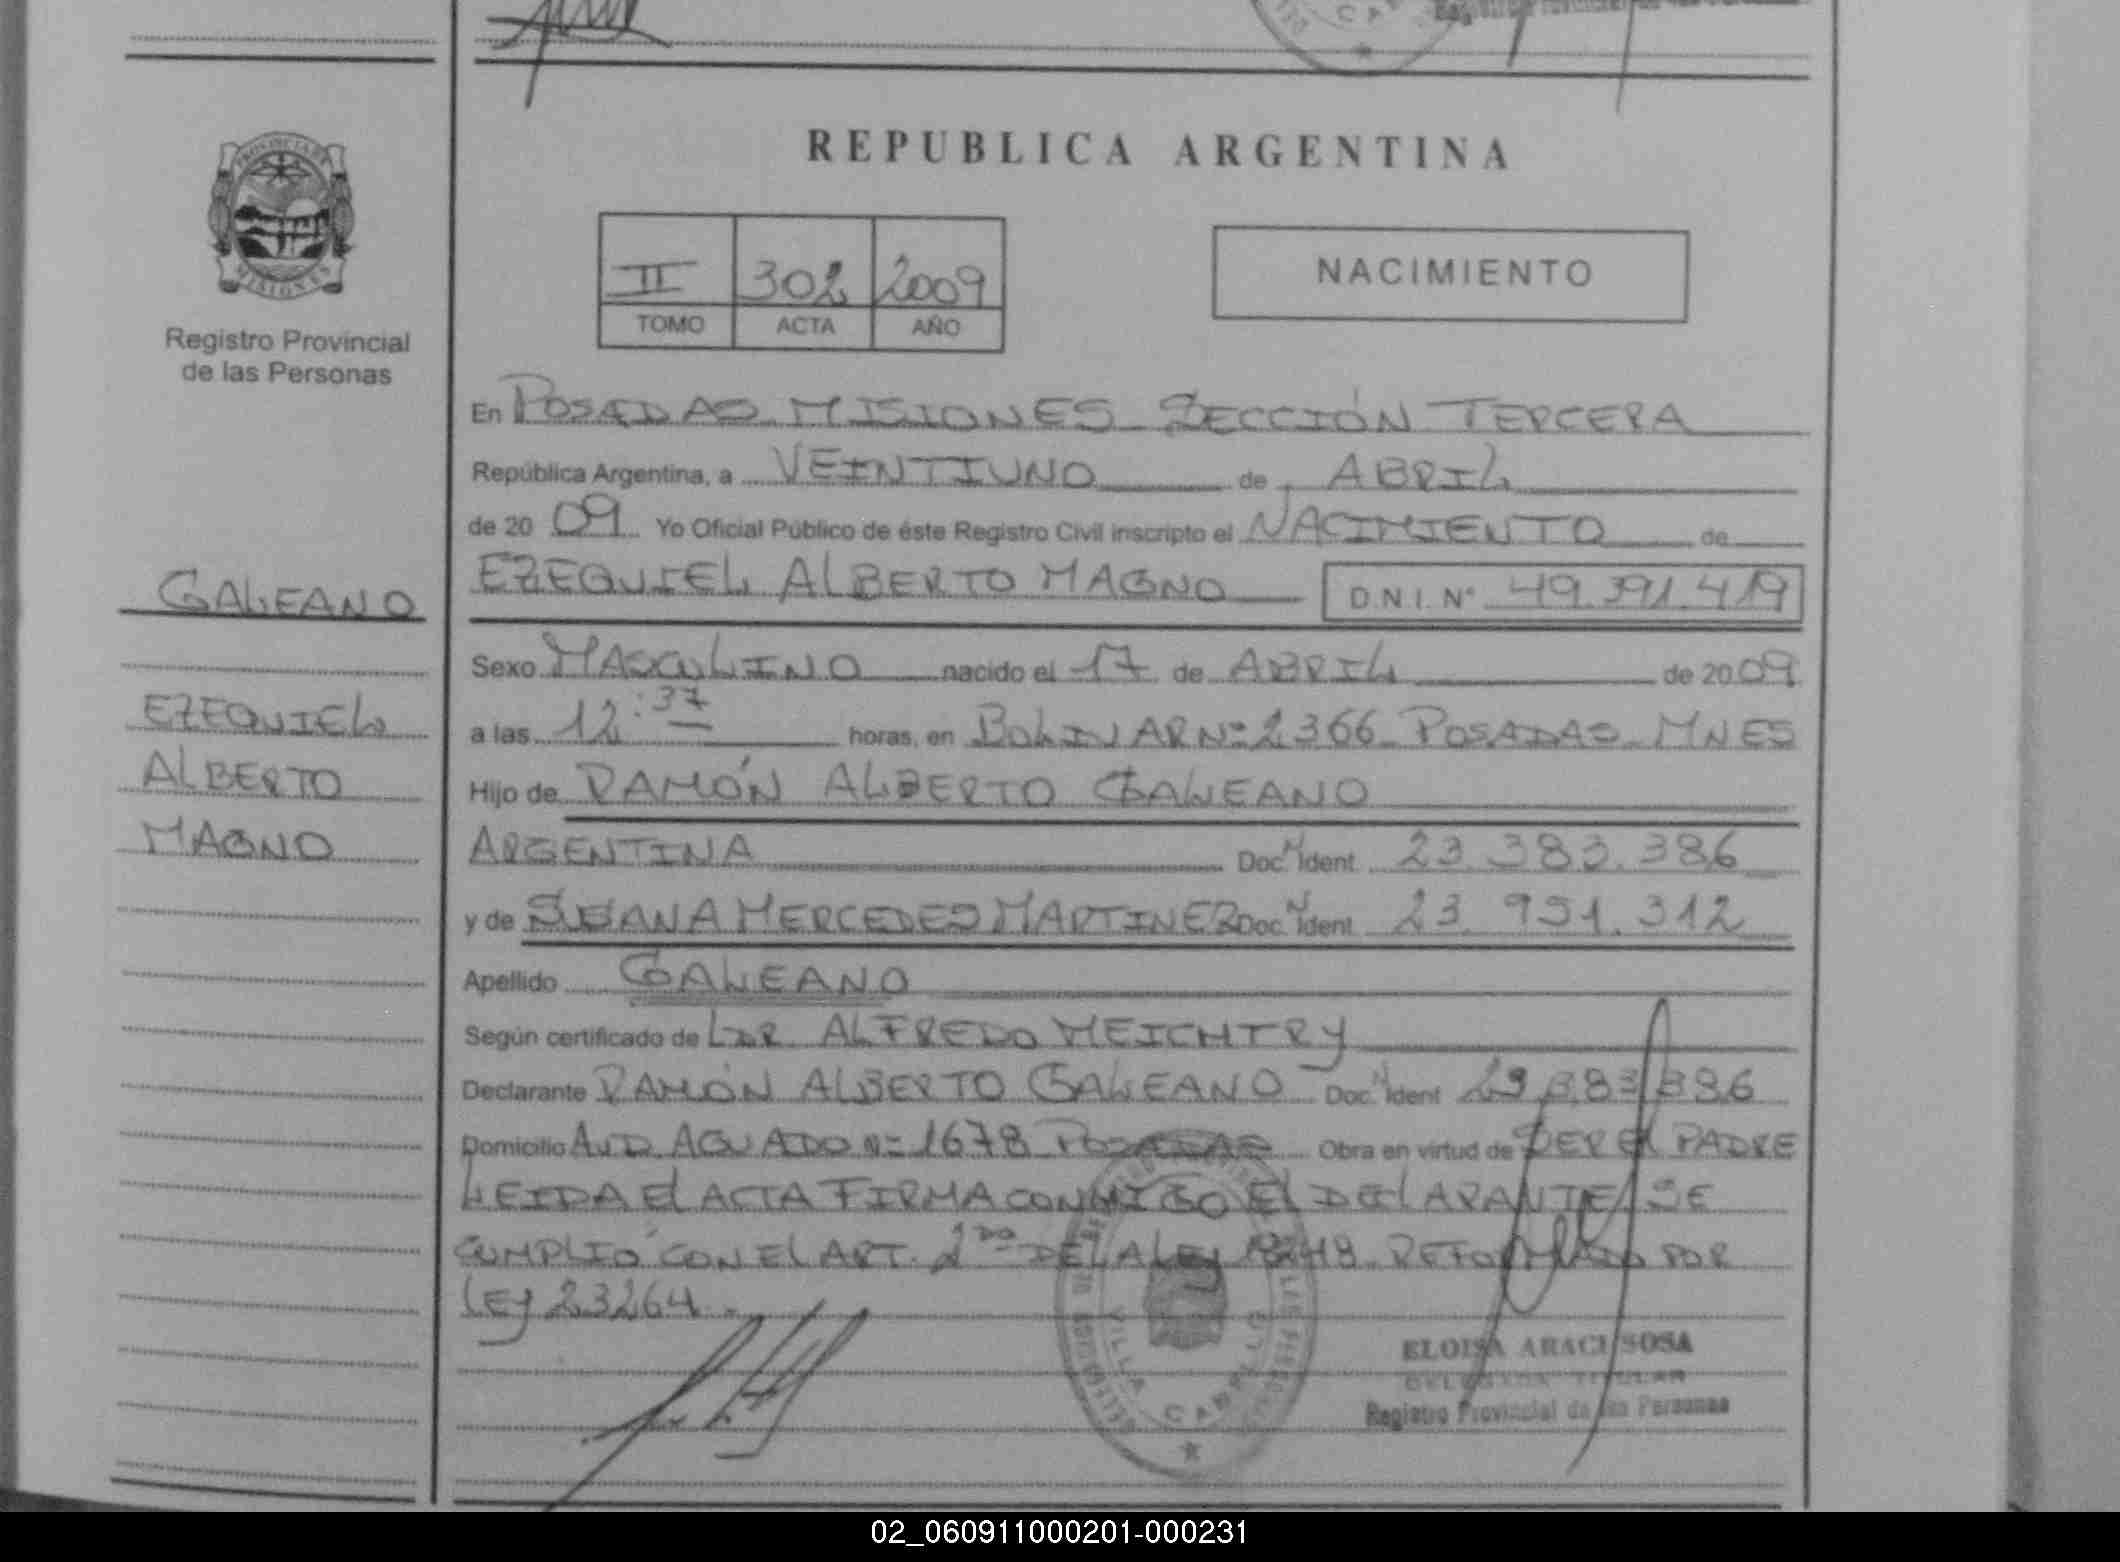 REPUBLICA ARGENTINA
PROVINCIA DE
MISIONES
Registro Provincial
de las Personas
II 302 2009
TOMO ACTA AÑO
NACIMIENTO
En POSADAS MISIONES SECCIÓN TERCERA
República Argentina, a VEINTIUNO de ABRIL
de 20 09 Yo Oficial Público de éste Registro Civil inscripto el NACIMIENTO de
EZEQUIEL ALBERTO MAGNO D.N.I. Nº 49.391.419
GALEANO
EZEQUIEL
ALBERTO
MAGNO
Sexo MASCULINO nacido el 17 de ABRIL de 20 09
a las 12:37 horas, en BOLIVAR Nº 2366 POSADAS MNES
Hijo de RAMÓN ALBERTO GALEANO
ARGENTINA Doc. N Ident 23.383.386
y de SUSANA MERCEDES MARTINEZ Doc. N Ident 23.951.312
Apellido GALEANO
Según certificado de L DR. ALFREDO MEICHTRY
Declarante RAMÓN ALBERTO GALEANO Doc. N Ident 23.383.386
Domicilio AVD. AGUADO Nº 1678 POSADAS Obra en virtud de SER EL PADRE
LEIDA El ACTA FIRMA CONMIGO El DECLARANTE SE
CUMPLIO CON El ART. 2DO DE LA LEY 18248 REFORMADO POR
LEY 23264.
VILLA CABELLO
ELOISA ARACI SOSA
DELEGADA TITULAR
Registro Provincial de las Personas
02_060911000201-000231